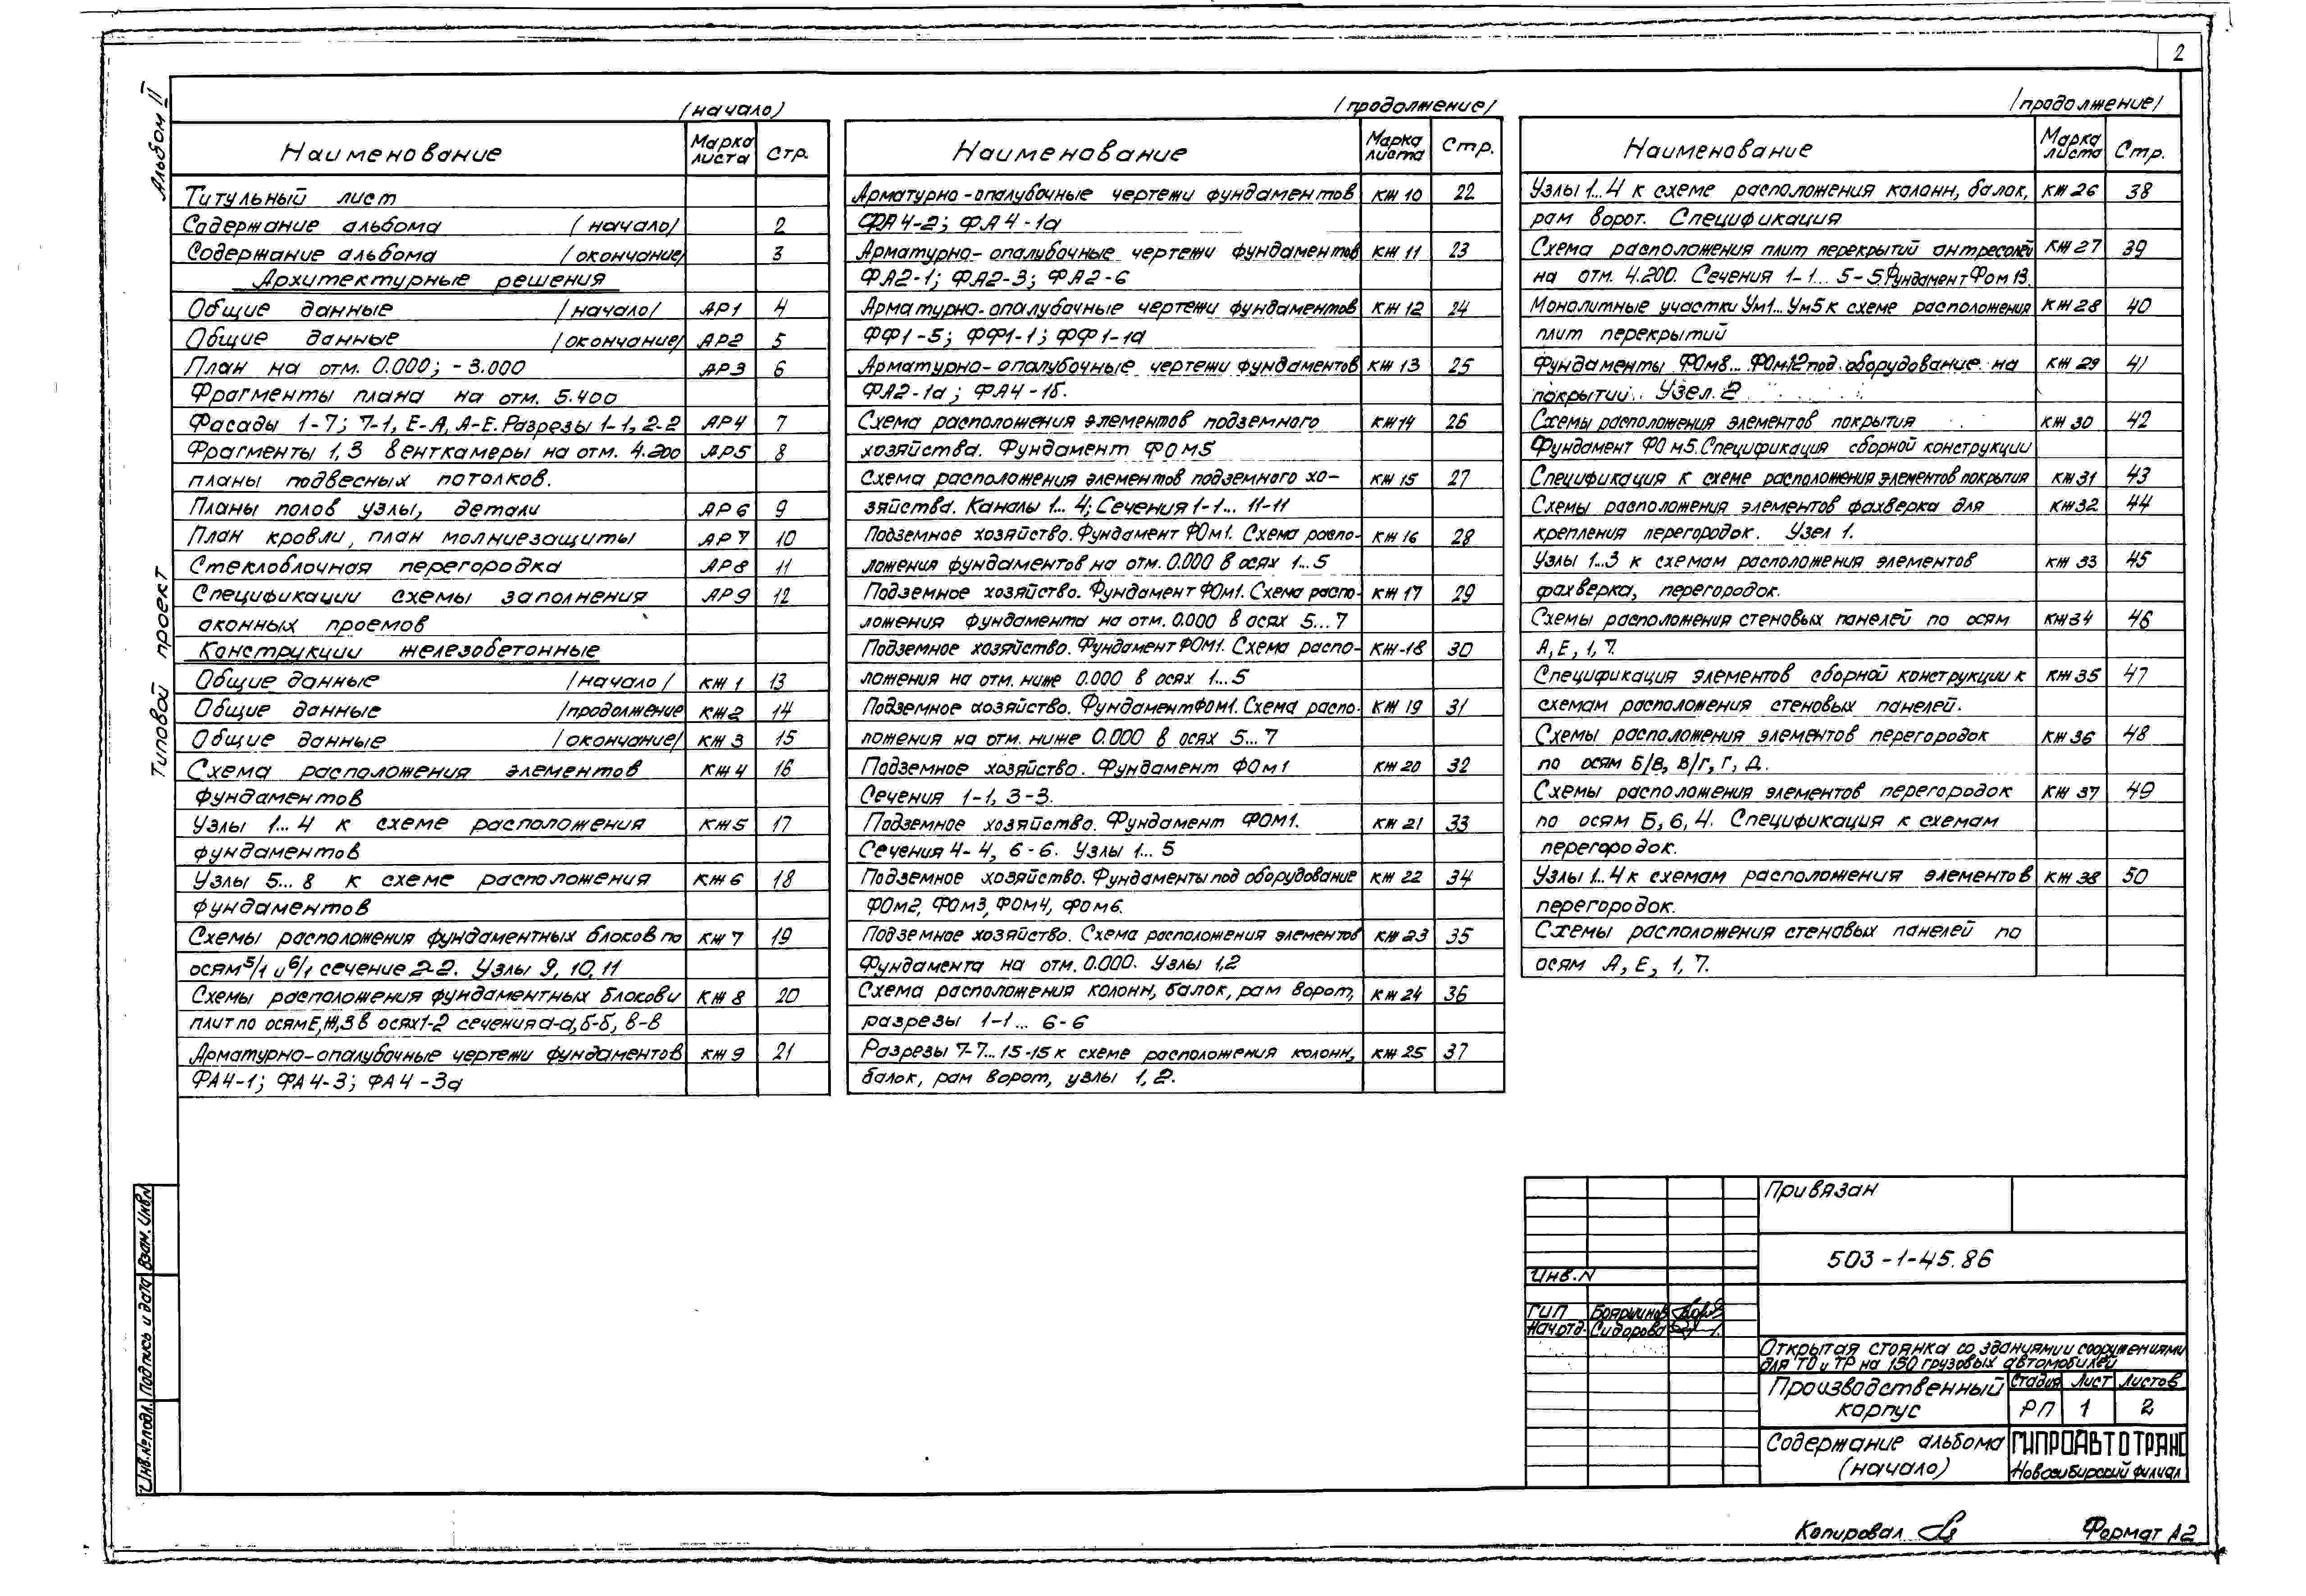 2
Альбом II
Типовой проект
(начало)
Наименование Марка листа Стр.
Титульный лист
Содержание альбома (начало/ 2
Содержание альбома (окончание/ 3
Архитектурные решения
Общие данные /начало/ АР1 4
Общие данные /окончание/ АР2 5
План на отм. 0.000; -3.000 АР3 6
Фрагменты плана на отм. 5.400
Фасады 1-7; 7-1, Е-А, А-Е. Разрезы 1-1, 2-2 АР4 7
Фрагменты 1,3 венткамеры на отм. 4.200 АР5 8
планы подвесных потолков.
Планы полов узлы, детали АР6 9
План кровли, план молниезащиты АР7 10
Стеклоблочная перегородка АР8 11
Спецификации схемы заполнения АР9 12
оконных проемов
Конструкции железобетонные
Общие данные /начало/ КЖ 1 13
Общие данные /продолжение КЖ2 14
Общие данные /окончание/ КЖ 3 15
Схема расположения элементов КЖ 4 16
фундаментов
Узлы 1...4 к схеме расположения КЖ5 17
фундаментов
Узлы 5...8 к схеме расположения КЖ 6 18
фундаментов
Схемы расположения фундаментных блоков по КЖ 7 19
осям 5/1 и 6/1 сечение 2-2. Узлы 9, 10, 11
Схемы расположения фундаментных блоков и КЖ 8 20
плит по осям Е, Ж, З в осях 1-2 сечения а-а, б-б, в-в
Арматурно-опалубочные чертежи фундаментов КЖ 9 21
ФА4-1; ФА4-3; ФА4-3а
/продолжение/
Наименование Марка листа Стр.
Арматурно-опалубочные чертежи фундаментов КЖ 10 22
ФА4-2; ФА4-1а
Арматурно-опалубочные чертежи фундаментов КЖ 11 23
ФА2-1; ФА2-3; ФА2-6
Арматурно-опалубочные чертежи фундаментов КЖ 12 24
ФФ1-5; ФФ1-1; ФФ1-1а
Арматурно-опалубочные чертежи фундаментов КЖ 13 25
ФА2-1а; ФА4-1б.
Схема расположения элементов подземного КЖ14 26
хозяйства. Фундамент ФОм5
Схема расположения элементов подземного хо- КЖ 15 27
зяйства. Каналы 1...4; Сечения 1-1... 11-11
Подземное хозяйство. Фундамент ФОм1. Схема распо- КЖ 16 28
ложения фундаментов на отм. 0.000 в осях 1...5
Подземное хозяйство. Фундамент ФОм1. Схема распо- КЖ 17 29
ложения фундамента на отм. 0.000 в осях 5...7
Подземное хозяйство. Фундамент ФОМ1. Схема распо- КЖ-18 30
ложения на отм. ниже 0.000 в осях 1...5
Подземное хозяйство. Фундамент ФОМ1. Схема распо- КЖ 19 31
ложения на отм. ниже 0.000 в осях 5...7
Подземное хозяйство. Фундамент ФОм1 КЖ 20 32
Сечения 1-1, 3-3.
Подземное хозяйство. Фундамент ФОМ1. КЖ 21 33
Сечения 4-4, 6-6. Узлы 1...5
Подземное хозяйство. Фундаменты под оборудование КЖ 22 34
ФОм2, ФОм3, ФОМ4, ФОм6.
Подземное хозяйство. Схема расположения элементов КЖ 23 35
Фундамента на отм. 0.000. Узлы 1,2
Схема расположения колонн, балок, рам ворот, КЖ 24 36
разрезы 1-1... 6-6
Разрезы 7-7...15-15 к схеме расположения колонн, КЖ 25 37
балок, рам ворот, узлы 1, 2.
/продолжение/
Наименование Марка листа Стр.
Узлы 1...4 к схеме расположения колонн, балок, КЖ 26 38
рам ворот. Спецификация
Схема расположения плит перекрытий антресолей КЖ 27 39
на отм. 4.200. Сечения 1-1... 5-5. Фундамент Фом 13.
Монолитные участки Ум1...Ум5 к схеме расположения КЖ 28 40
плит перекрытий
Фундаменты ФОм8... ФОм12 под оборудование на КЖ 29 41
покрытии. Узел 2
Схемы расположения элементов покрытия КЖ 30 42
Фундамент ФОм5. Спецификация сборной конструкции
Спецификация к схеме расположения элементов покрытия КЖ31 43
Схемы расположения элементов фахверка для КЖ32 44
крепления перегородок. Узел 1.
Узлы 1...3 к схемам расположения элементов КЖ 33 45
фахверка, перегородок.
Схемы расположения стеновых панелей по осям КЖ34 46
А, Е, 1, 7.
Спецификация элементов сборной конструкции к КЖ 35 47
схемам расположения стеновых панелей.
Схемы расположения элементов перегородок КЖ 36 48
по осям Б/В, В/Г, Г, Д.
Схемы расположения элементов перегородок КЖ 37 49
по осям Б, 6, 4. Спецификация к схемам
перегородок.
Узлы 1...4 к схемам расположения элементов КЖ 38 50
перегородок.
Схемы расположения стеновых панелей по
осям А, Е, 1, 7.
Привязан
503-1-45.86
Инв.N
ГИП Бояршинов
Нач.отд. Сидорова
Открытая стоянка со зданиями и сооружениями
для ТО и ТР на 150 грузовых автомобилей
Производственный корпус
Стадия Лист Листов
РП 1 2
Содержание альбома (начало)
ГИПРОАВТОТРАНС
Новосибирский филиал
Взам. Инв.N
Подпись и дата
Инв.№ подл.
Копировал
Формат А2